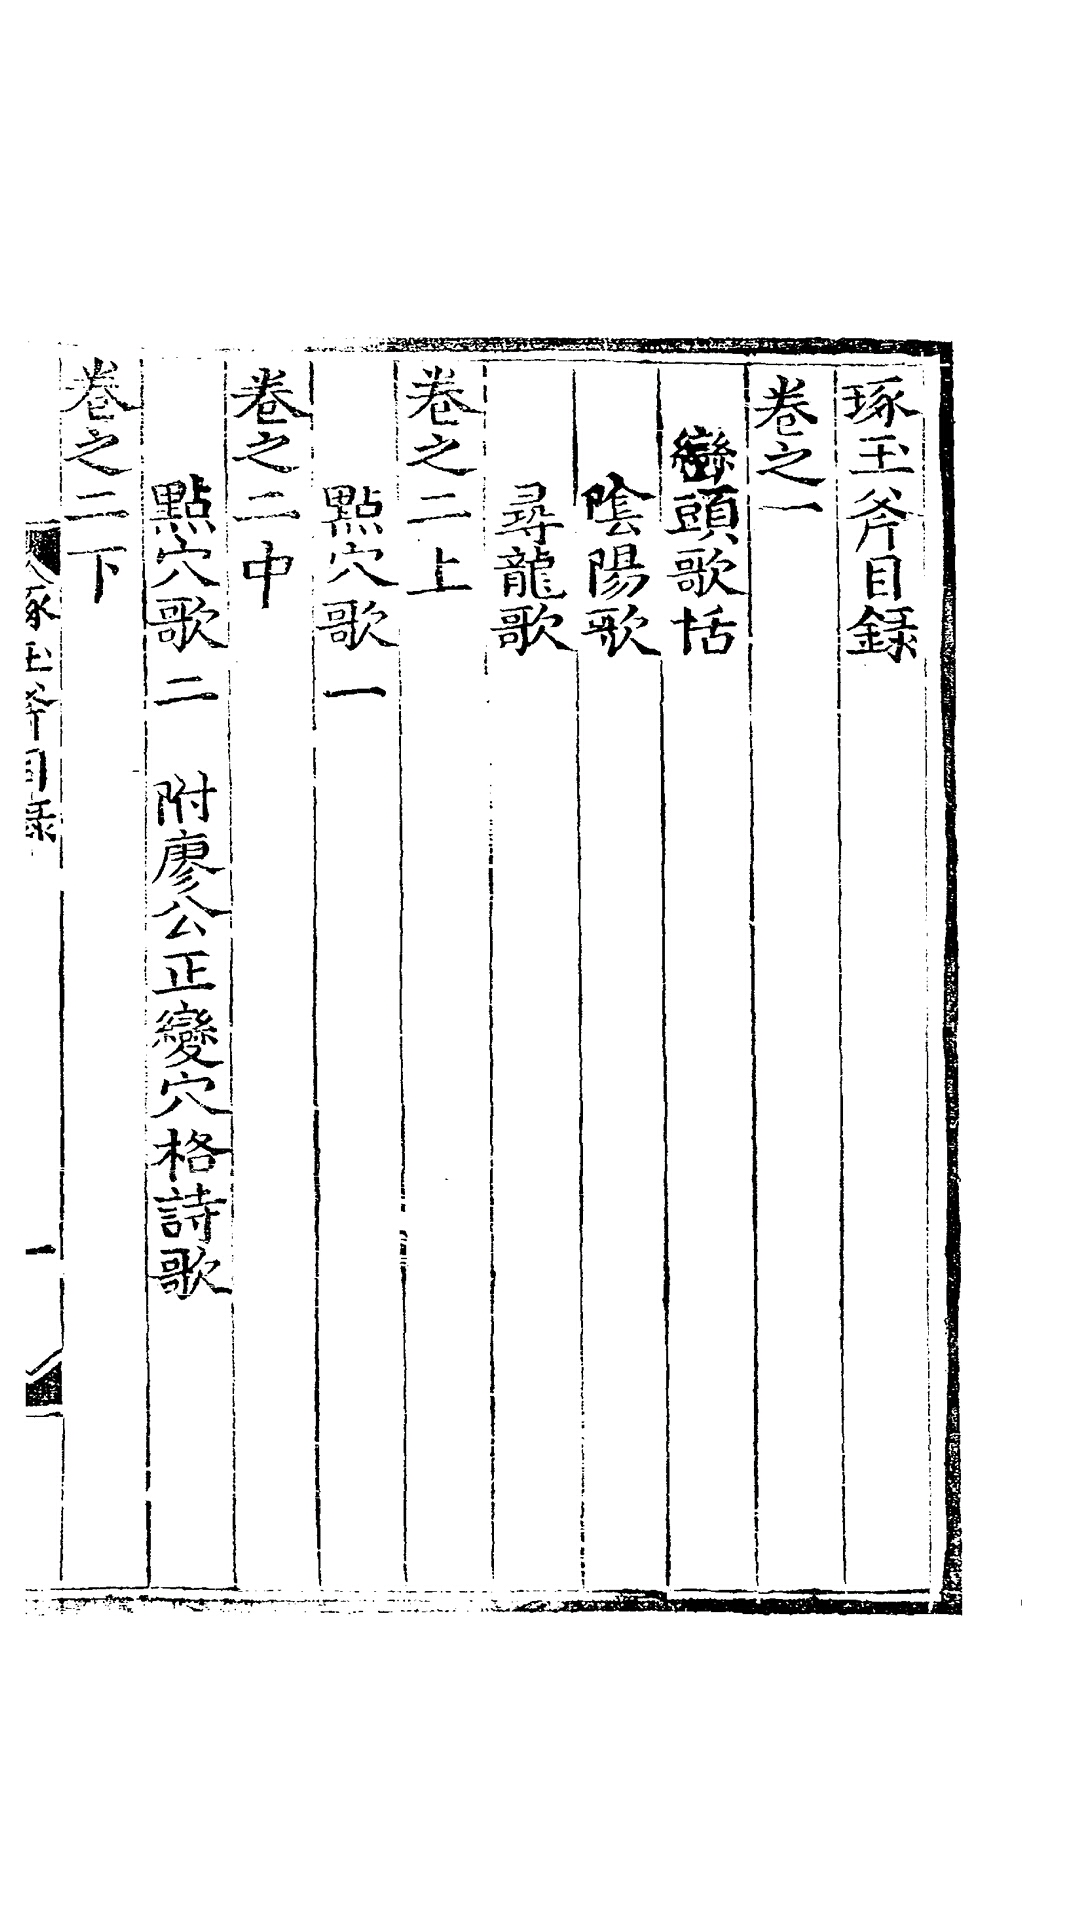 琢玉斧目録
卷之一
巒頭歌括
陰陽歌
尋龍歌
卷之二上
點穴歌一
卷之二中
點穴歌二　附廖公正變穴格詩歌
卷之二下
琢玉斧目録
一